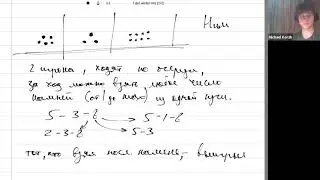 Ним
2 игрока, ходят по очереди,
за ход можно взять любое число
камней (от 1 до max) из одной кучи.
5 - 3 - 2
5 - 1 - 2
2 - 3 - 2
5 - 3
тот, кто взял посл камень, - выиграл